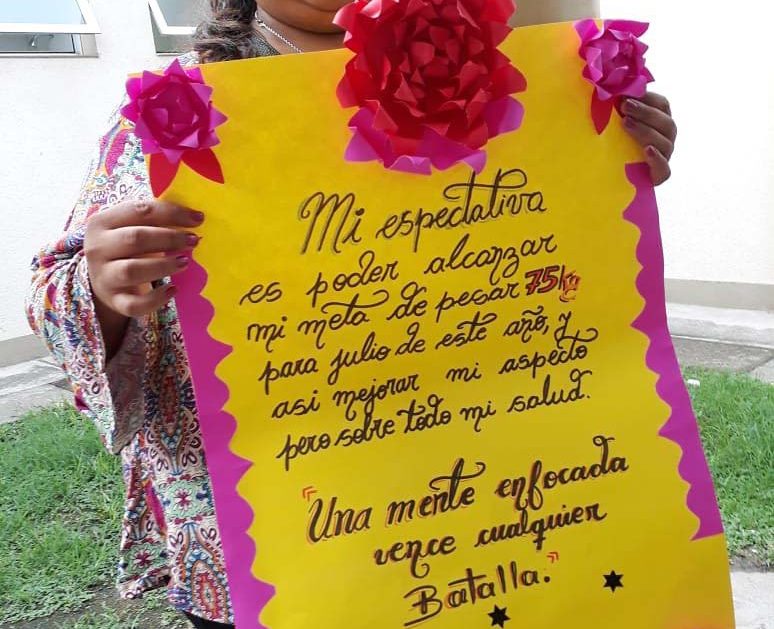 Mi espectativa
es poder alcanzar
mi meta de pesar 75kg
para julio de este año, y
asi mejorar mi aspecto
pero sobre todo mi salud.
"Una mente enfocada
vence cualquier
Batalla."